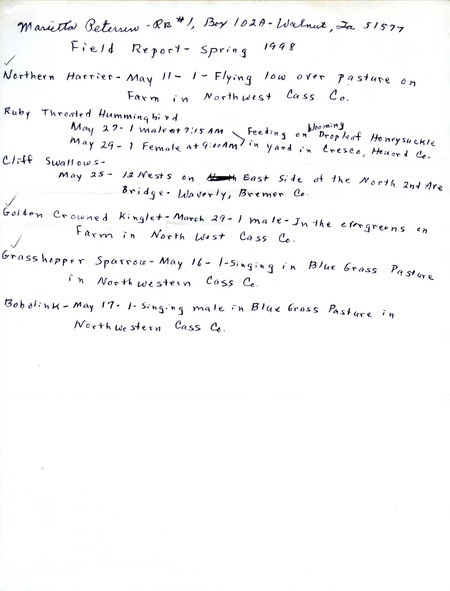 Marietta Petersen - RR #1, Box 102A - Walnut, Ia 51577
Field Report - Spring 1998
✓
Northern Harrier - May 11 - 1 - Flying low over pasture on
Farm in Northwest Cass Co.
Ruby Throated Hummingbird
May 27 - 1 male at 7:15 AM
May 29 - 1 Female at 9:10 AM
blooming
Feeding on Dropleaf Honeysuckle
in yard in Cresco, Howard Co.
Cliff Swallows -
May 25 - 12 Nests on East Side of the North 2nd Ave
Bridge - Waverly, Bremer Co.
✓
Golden Crowned Kinglet - March 29 - 1 male - In the evergreens on
Farm in North West Cass Co.
✓
Grasshopper Sparrow - May 16 - 1 - Singing in Blue Grass Pasture
in Northwestern Cass Co.
Bobolink - May 17 - 1 - Singing male in Blue Grass Pasture in
Northwestern Cass Co.